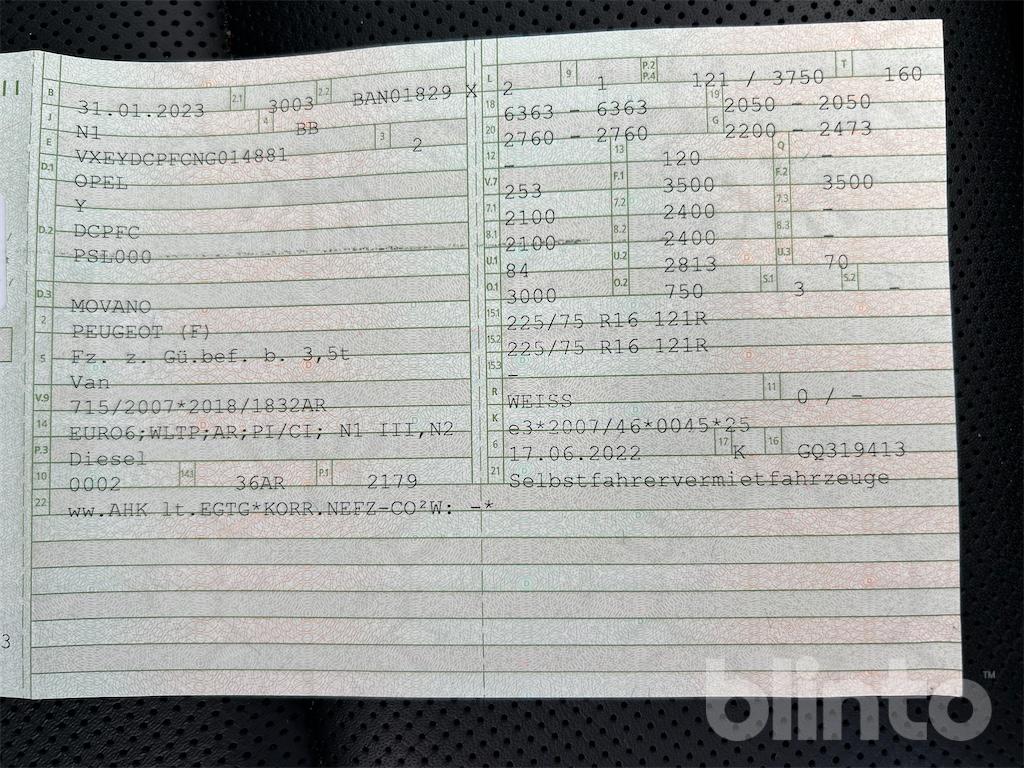 II
B 31.01.2023 2.1 3003 2.2 BAN01829 X
J N1 4 BB
E VXEYDCPFCNG014881 3 2
D.1 OPEL
Y
D.2 DCPFC
PSL000
D.3 MOVANO
2 PEUGEOT (F)
5 Fz. z. Gü.bef. b. 3,5t
Van
V.9 715/2007*2018/1832AR
14 EURO6;WLTP;AR;PI/CI; N1 III,N2
P.3 Diesel
10 0002 14.1 36AR P.1 2179
22 ww.AHK lt.EGTG*KORR.NEFZ-CO²W: -*
L 2 9 1 P.2 P.4 121 / 3750 T 160
18 6363 - 6363 19 2050 - 2050
20 2760 - 2760 G 2200 - 2473
12 - 13 120 Q -
V.7 253 F.1 3500 F.2 3500
7.1 2100 7.2 2400 7.3 -
8.1 2100 8.2 2400 8.3 -
U.1 84 U.2 2813 U.3 70
O.1 3000 O.2 750 S.1 3 S.2 -
15.1 225/75 R16 121R
15.2 225/75 R16 121R
15.3 -
R WEISS 11 0 / -
K e3*2007/46*0045*25
6 17.06.2022 17 K 16 GQ319413
21 Selbstfahrervermietfahrzeuge
3
blinto™